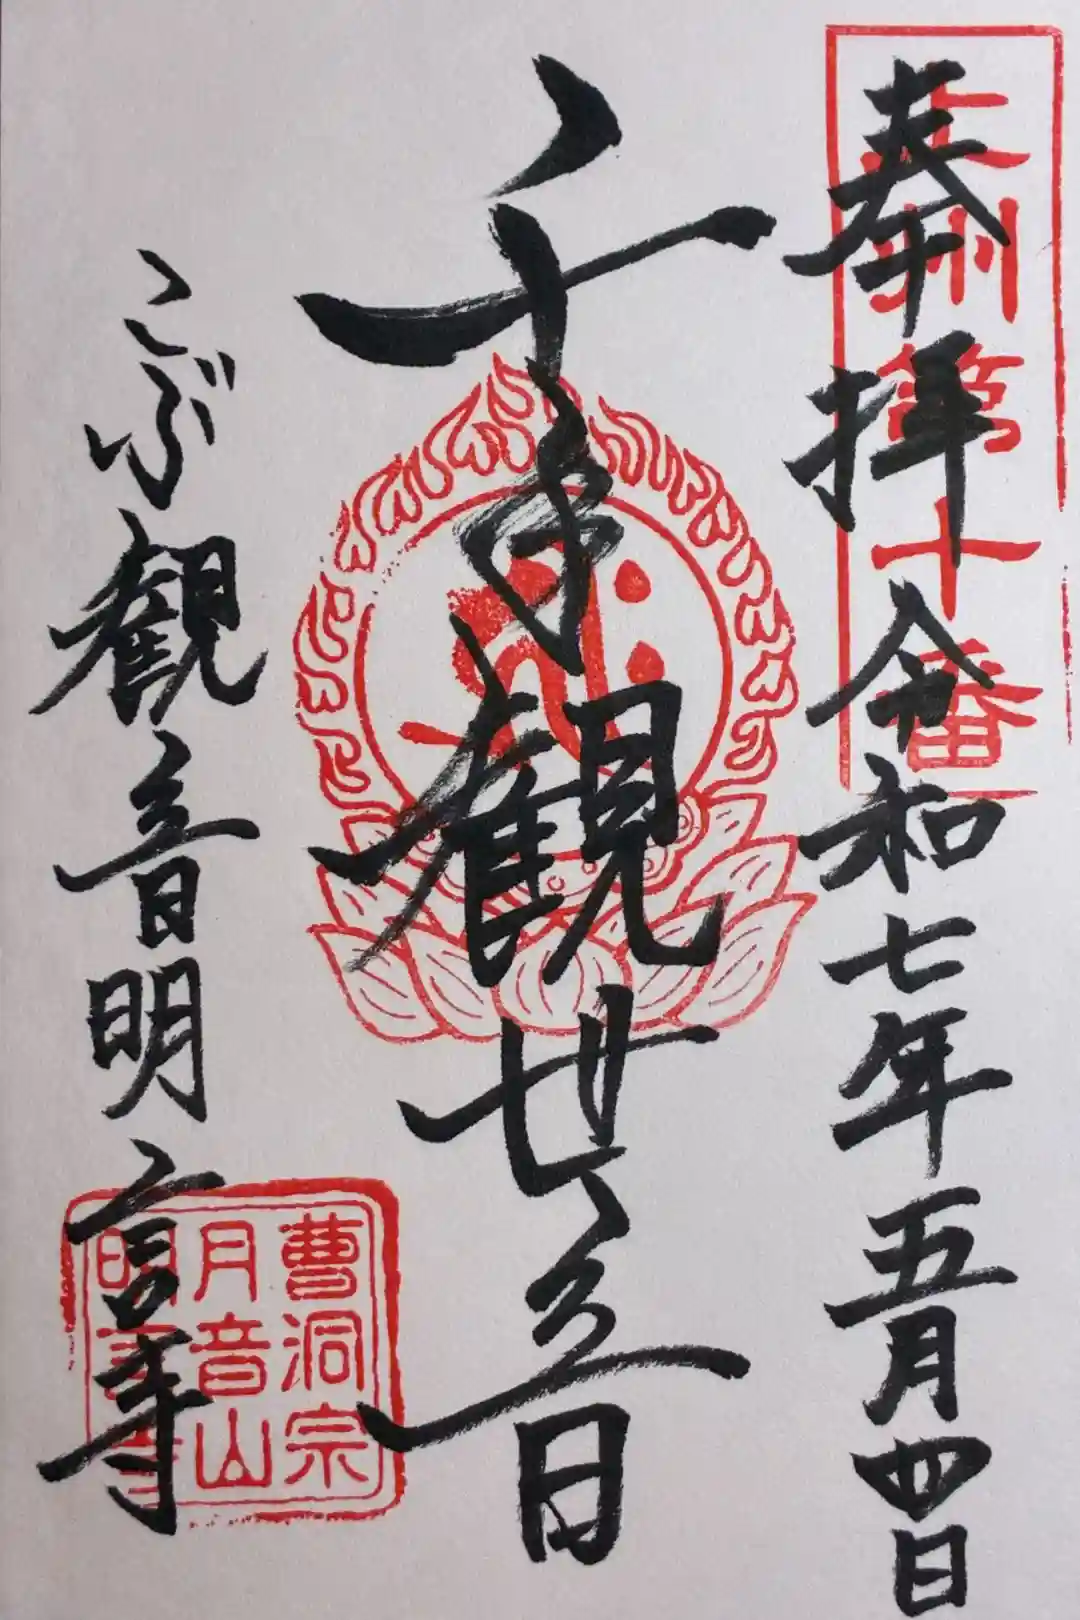 奉拝 令和七年五月四日
上州第十番
千手観世音
こぶ観音明言寺
曹洞宗
月音山
明言寺